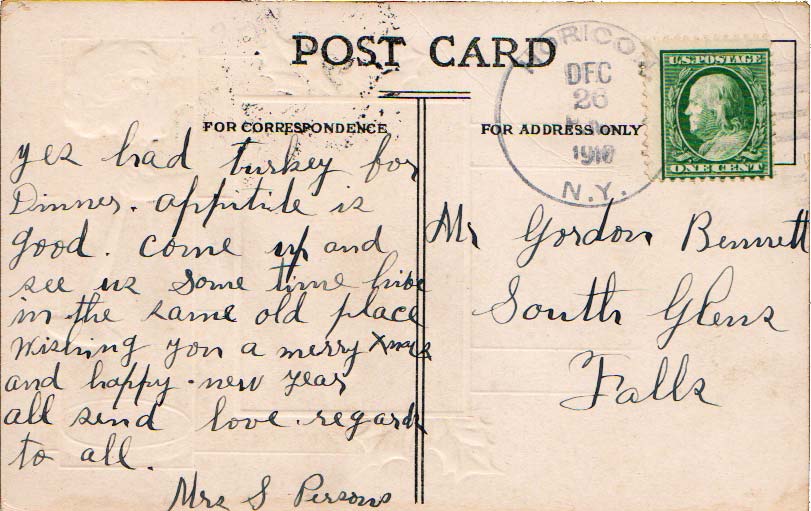 POST CARD
FOR CORRESPONDENCE
FOR ADDRESS ONLY
HORICON
DEC
26
1910
N.Y.
U.S. POSTAGE
ONE CENT
yes had turkey for
Dinner. appitite is
good. come up and
see us some time live
in the same old place
Wishing you a merry Xmas
and happy. new year
all send love. regards
to all.
Mrs S Persons
Mr Gordon Bennett
South Glens
Falls